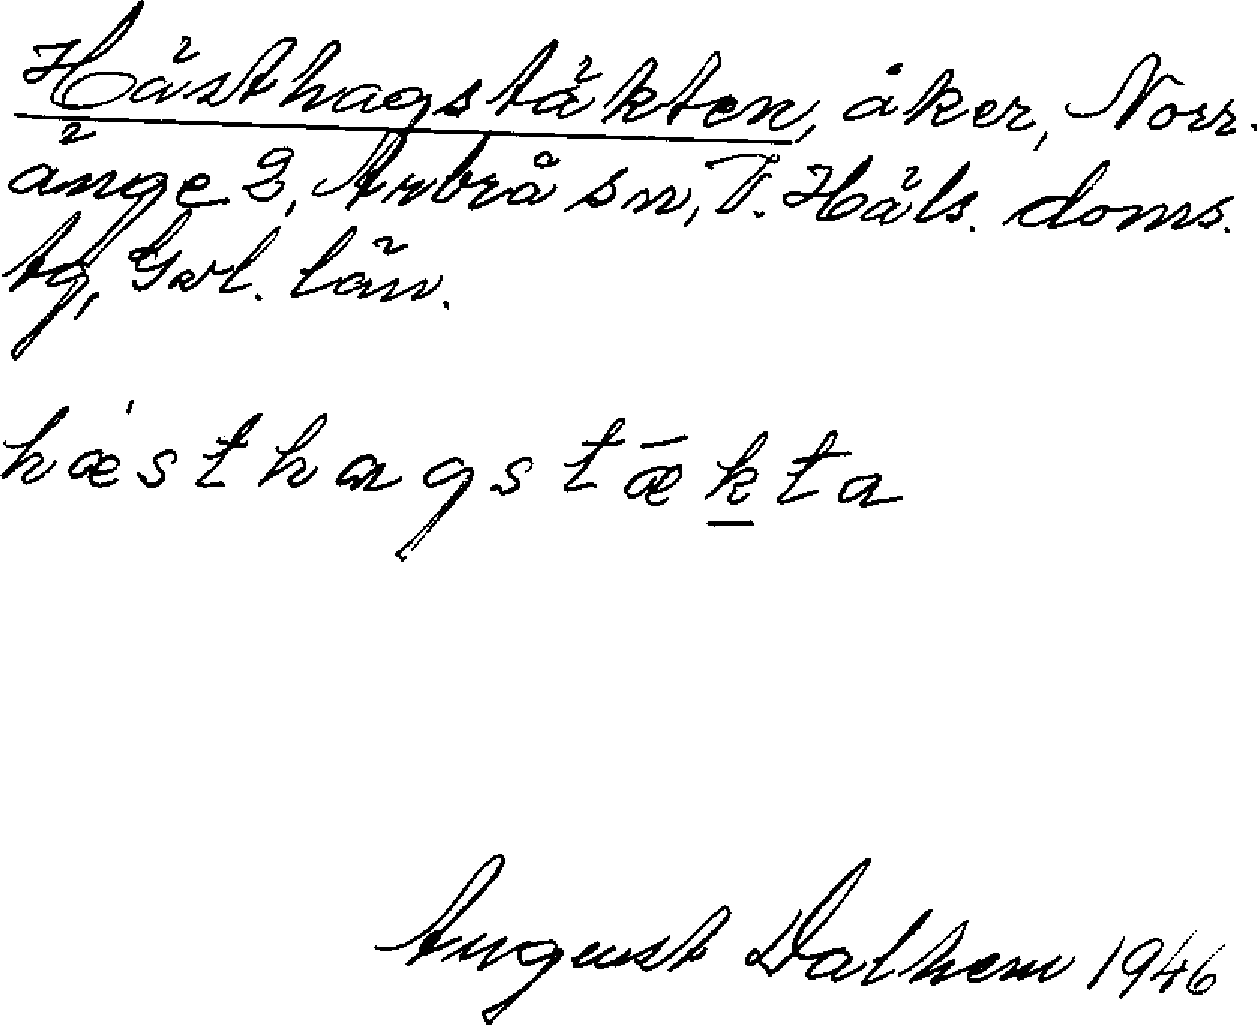 Hästhagstäkten, åker, Norr-
änge 2, Arbrå sn, V. Häls. doms.
tg, Gvl. län.
hǽsthagstǣkta
August Dalhem 1946